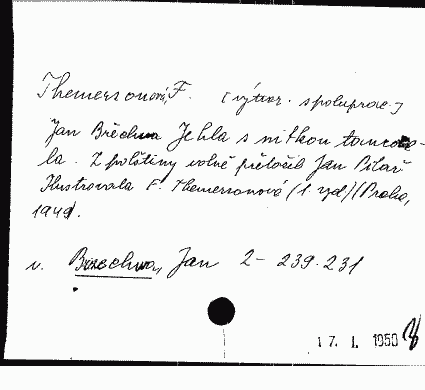 Themersonová, F. [výtvor. spoluprac.]
Jan Brěchwa Jehla s nitkou tancova-
la. Z polštiny volně přeložil Jan Pilař
Ilustrovala F. Themersonová (1. vyd) (Praha,
1949.
v. Brzechwa, Jan 2-239.231
17. I. 1950